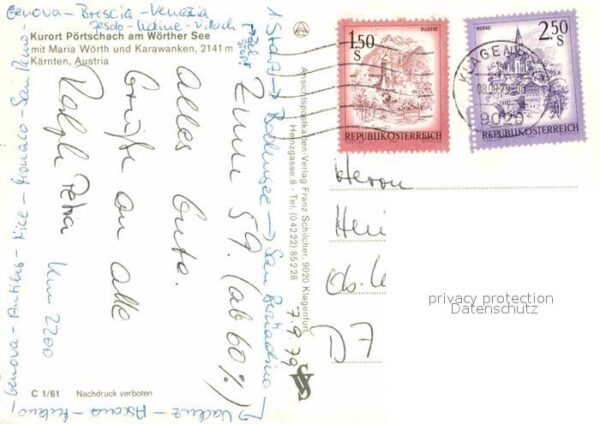 Kurort Pörtschach am Wörther See
mit Maria Wörth und Karawanken, 2141 m
Kärnten, Austria
Genova - Brescia - Venezia
Jesolo - Udine - Villach
1. Start → Bodensee → San Bernadino →
Vaduz - Ascona - Milano
- Genova - Antibes - Nice - Monaco - San Remo
Zum 59. (ab 60%)
Alles Gute.
Grüße an alle
Ralph Petra
Km 2200
7.9.79
Ansichtspostkarten-Verlag Franz Schilcher, 9020 Klagenfurt
Heinzgasse 8 - Tel. (0 42 22) 85 2 28
C 1/61 Nachdruck verboten
1.50
S
BLUDENZ
REPUBLIK ÖSTERREICH
2.50
S
MURAU
REPUBLIK ÖSTERREICH
KLAGENF
08.09.79
9020
Herrn
Hei
D7
privacy protection
Datenschutz